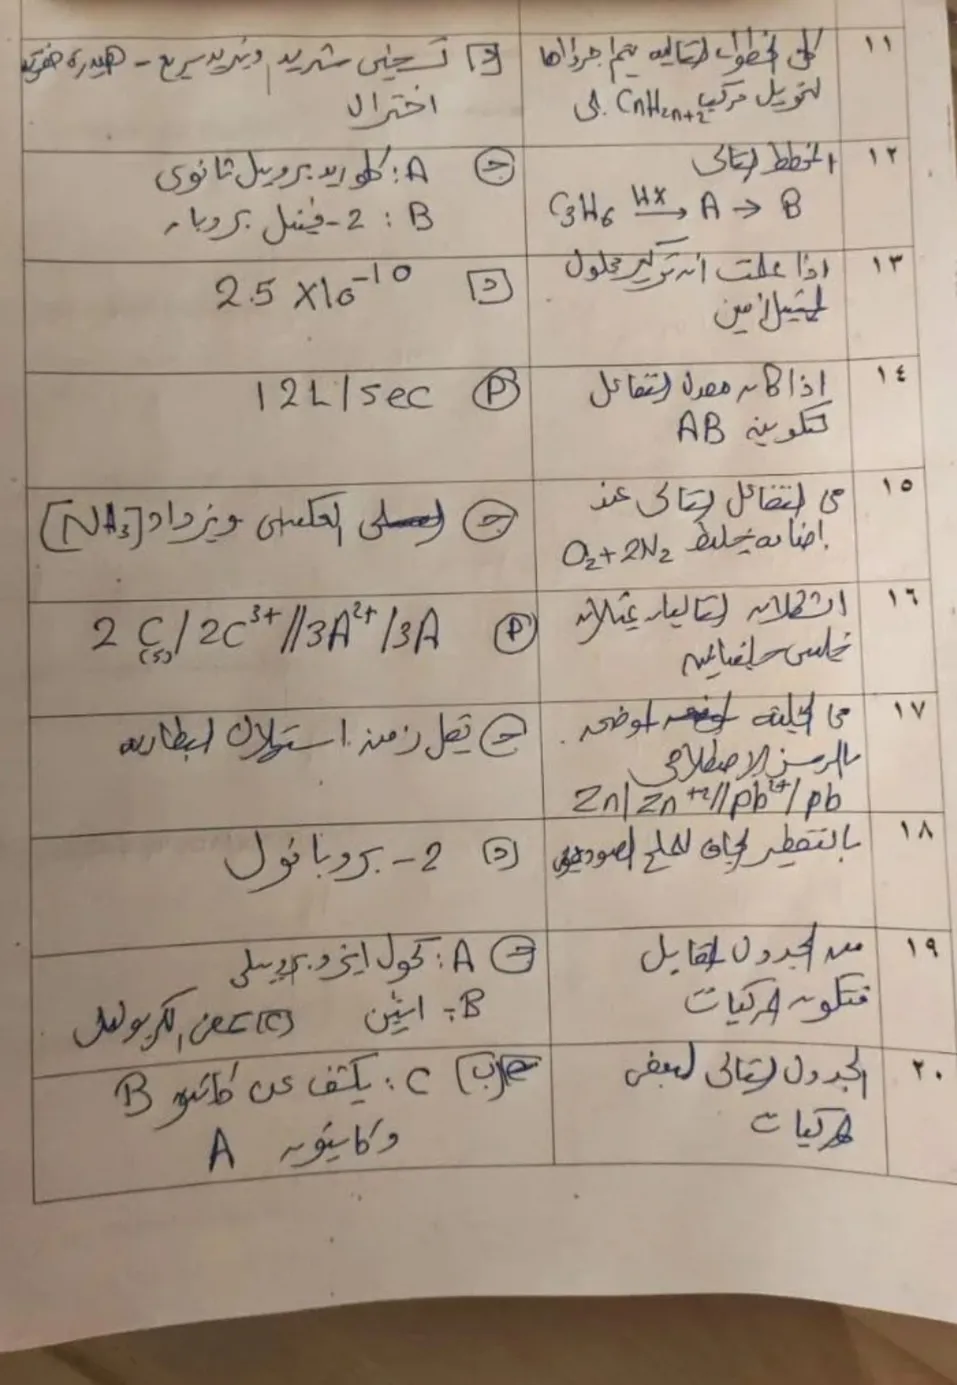 ١١
كل الخطوات التاليه يتم اجراؤها
لتحويل مركب CnH2n+2 الى
د تسخين شديد وتبريد سريع - هيدرة حفزية
اختزال
١٢
المخطط التالى
C3H6 HX→ A → B
ج A: كلوريد بروبيل ثانوى
B: 2-فينيل بروبان
١٣
اذا علمت ان تركيز محلول
الميثيل أمين
د 2.5 X10-10
١٤
اذا كان معدل التفاعل
لتكوين AB
P 12L/sec
١٥
فى التفاعل التالى عند
اضافه خليط O2+2N2
ج العكسى ويزداد [NH3]
١٦
الشكلان التاليان يمثلان
خلايا جلفانية
P 2C(s)/2C3+//3A2+/3A
١٧
فى الخلية الموضحه
بالرمز الاصطلاحى
Zn/Zn+2//Pb2+/Pb
ج تقل زمن استهلاك البطاريه
١٨
بالتقطير الجاف للملح الصوديومى
د 2-بروبانول
١٩
من الجدول المقابل
فتكون المركبات
ج A: كحول ايزوبروبيلى
B: ايثين
٢٠
الجدول التالى لبعض
المركبات
ب C: يكشف عن كاتيون B
وكاتيون A